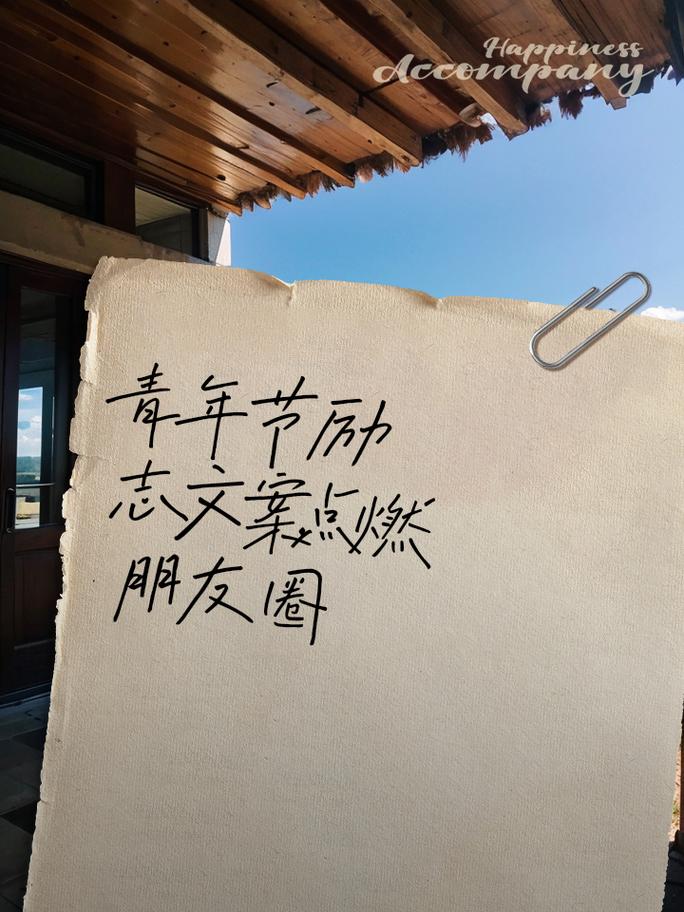 Happiness
Accompany
青年节励
志文案点燃
朋友圈